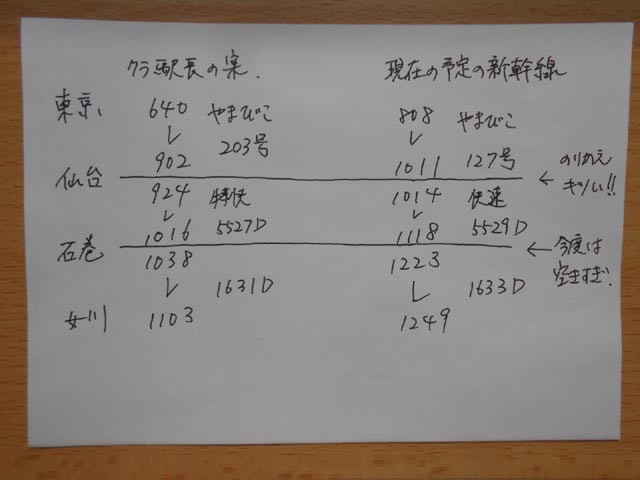 クラ駅長の案. 現在の予定の新幹線
東京 640 やまびこ 808 やまびこ
902 203号 1011 127号 ← のりかえ
仙台 キツい!!
924 特快 1014 快速
1016 5527D 1118 5529D ← 今度は
石巻 空きすぎ.
1038 1223
1631D 1633D
女川 1103 1249